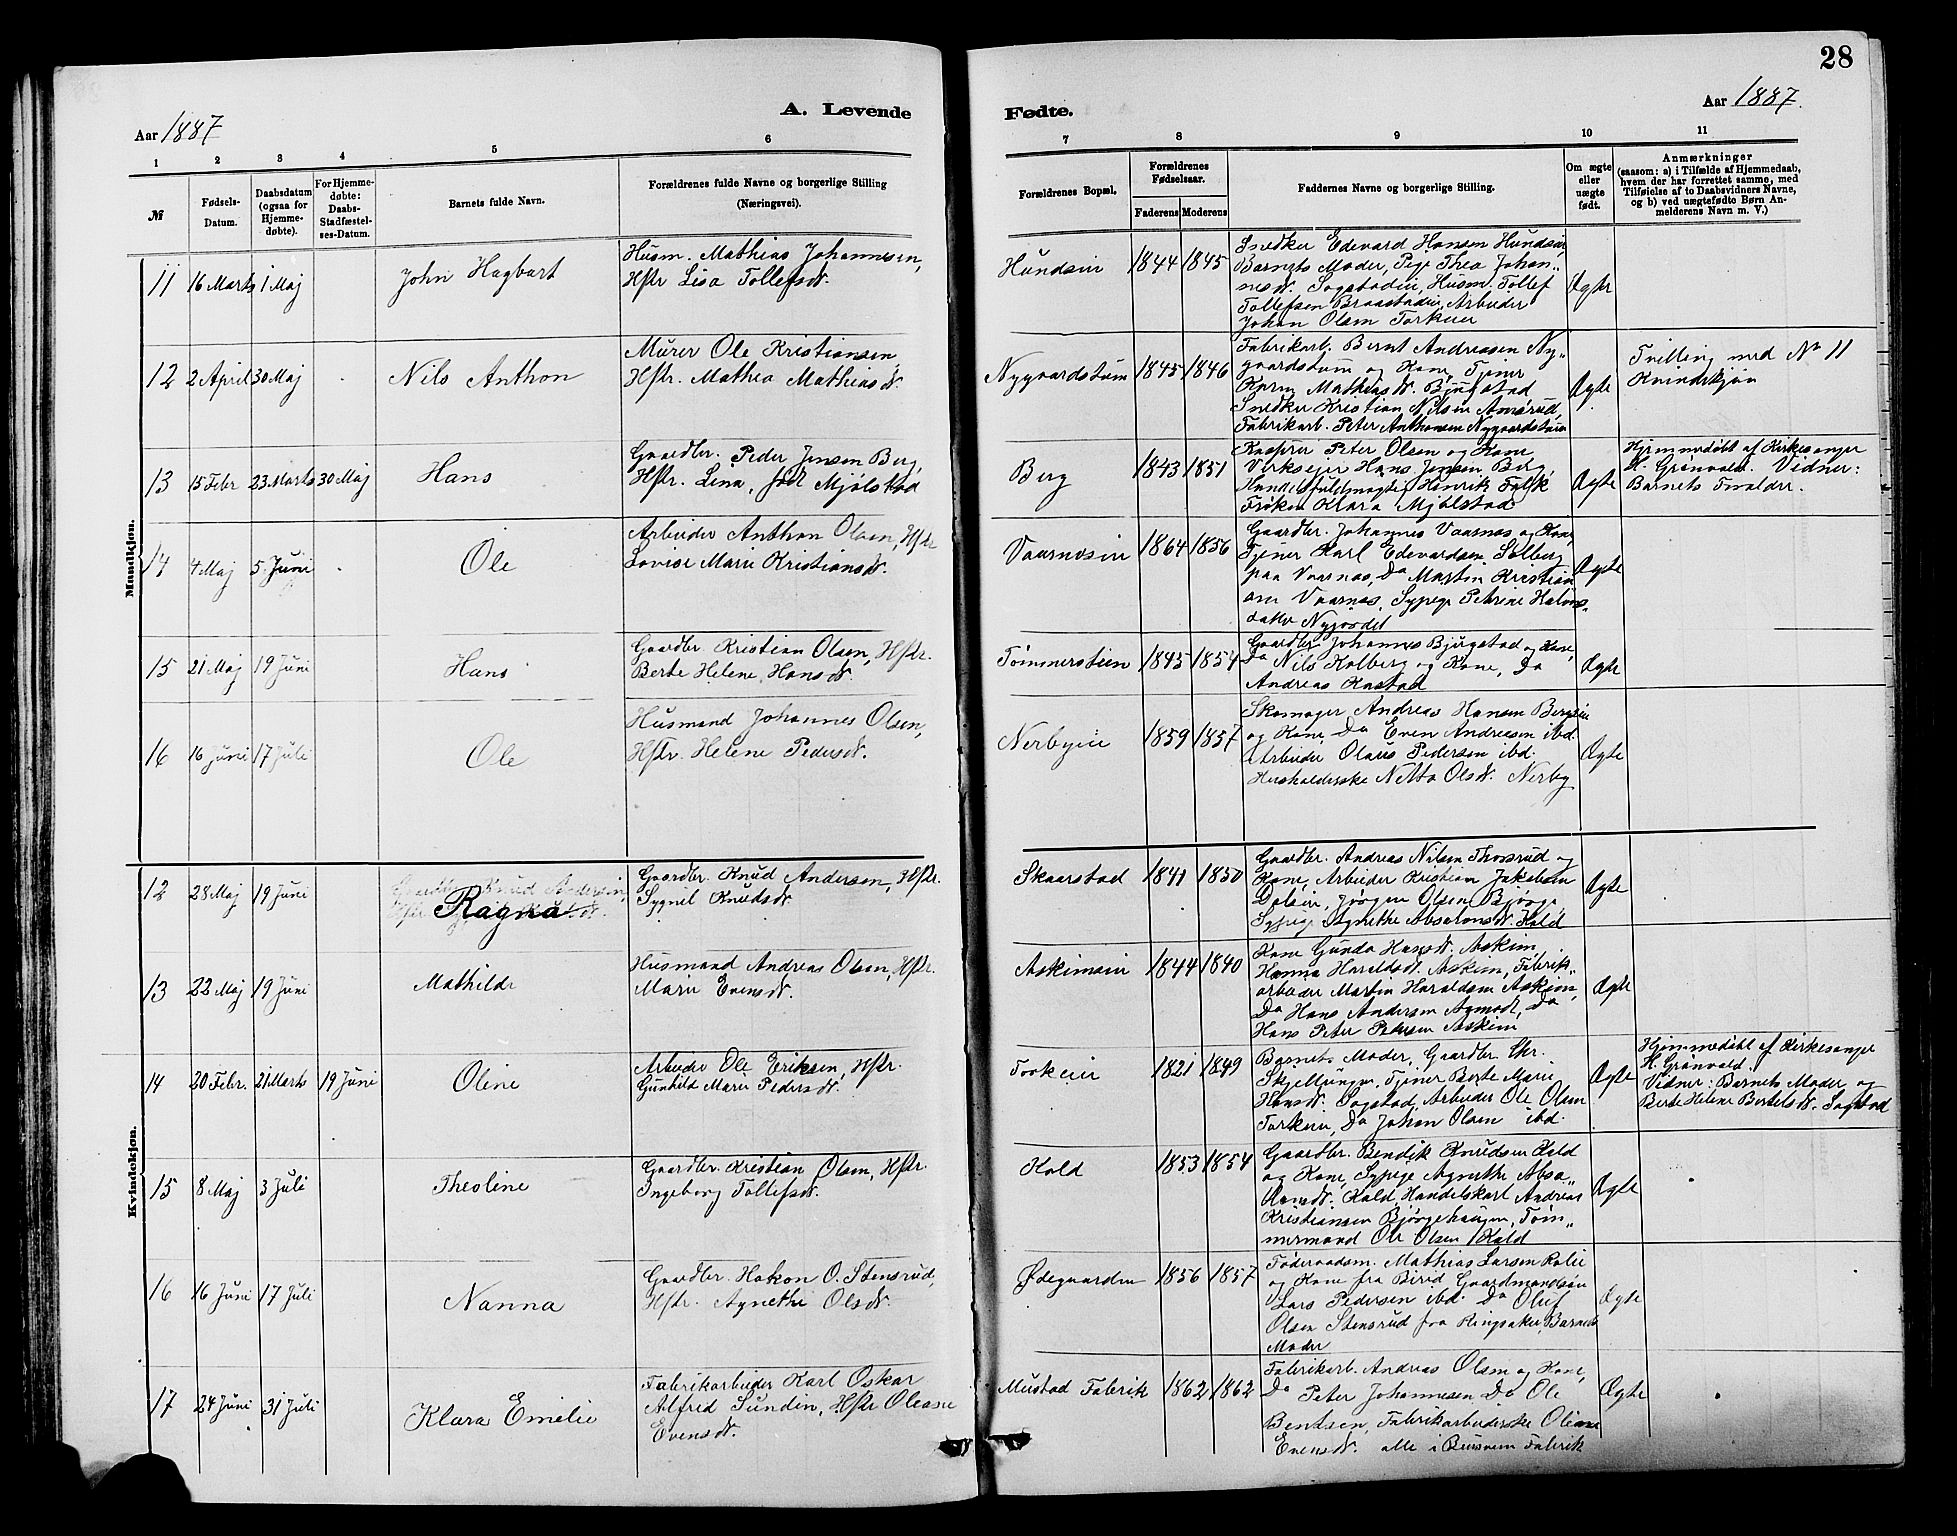 28
Aar 1887
A. Levende
Fødte.
Aar 1887.
1 2 3 4 5 6 7 8 9 10 11
№
Fødsels-
Datum.
Daabsdatum
(ogsaa for
Hjemme-
døbte).
For Hjemme-
døbte:
Daabs-
Stadfæstel-
ses-Datum.
Barnets fulde Navn.
Forældrenes fulde Navne og borgerlige Stilling
(Næringsvei).
Forældrenes Bopæl.
Forældrenes
Fødselsaar.
Faderens Moderens
Faddernes Navne og borgerlige Stilling.
Om ægte
eller
uægte
født.
Anmærkninger
(saasom: a) i Tilfælde af Hjemmedaab,
hvem der har forrettet samme, med
Tilføielse af to Daabsvidners Navne,
og b) ved uægtefødte Børn An-
melderens Navn m. V.)
Mandkjøn.
11 16 Marts 1 Maj
John Hagbart
Husm. Mathias Johannesen,
Hstr Lisa Tollefsdt.
Hundsein 1844 1845
Snedker Edevard Hansen Hundsein
Barnets Moder, Pige Thea Johan-
nesdt. Sogstadein, Husm. Tollef
Tollefsen Braastadein, Arbeider
Johan Olsen Torkeier
Ægte
12 2 April 30 Maj
Nils Anthon
Murer Ole Kristiansen
Hstr. Mathea Mathiasdt.
Nygaardstum 1845 1846
Fabrikarb. Bernt Andreasen Ny-
gaardstum og Kone, Tjener
Karen Mathiasdt. Bjugstad
Snedker Kristian Nilsen Amsrud,
Fabrikarb. Peter Anthonsen Nygaardstum
Ægte
Tvilling med № 11
Kvindekjøn
13 15 Febr 23 Marts 30 Maj
Hans
Gaardbr. Peder Jensen Berg,
Hstr. Lina, født Mjølstad
Berg 1843 1851
Kasserer Peter Olsen og Kone
Verkseier Hans Jensen Berg,
Handelsfuldmægtig Henrik Falck
Frøken Klara Mjølstad
Ægte
Hjemmedøbt af Kirkesanger
H. Grønvold. Vidner:
Barnets Forældre.
14 4 Maj 5. Juni
Ole
Arbeider Anthon Olsen, Hstr
Lovise Marie Kristiansdt.
Vaarnæsein 1864 1856
Gaardbr. Johannes Vaarnæs og Kone,
Tjener Karl Edevardsen Solberg
paa Vaarnæs, Do Martin Kristian
sen Vaarnæs, Sypige Petrine Halvors
datter Nyjordet
Ægte
15 21 Maj 19 Juni
Hans
Gaardbr. Kristian Olsen, Hstr.
Berte Helene Hansdt.
Tømmerstien 1845 1854
Gaardbr Johannes Bjugstad og Kone,
Do Nils Kolberg og Kone, Do
Andreas Rastad
Ægte
16 16 Juni 17 Juli
Ole
Husmand Johannes Olsen,
Hstr. Helene Pedersdt.
Nerbyeie 1859 1857
Skomager Andreas Hansen Bergsein
og Kone, Do Even Andreasen ibd
Arbeider Olaus Pedersen ibd.
Husholderske Netta Olsdt. Nerby
Ægte
Kvindekjøn.
12 28 Maj 19 Juni
Ragna
Gaardbr. Knud Andersen, Hstr.
Sygnil Knudsdt
Skaarstad 1841 1850
Gaardbr. Andreas Nilsen Thosrud og
Kone, Arbeider Kristian Jakobsen
Dølein, Jørgen Olsen Bjørge,
Sypige Agnethe Absalonsdt. Kold
Ægte
13 22 Maj 19 Juni
Mathilde
Husmand Andreas Olsen, Hstr.
Marie Evensdt.
Askimsein 1844 1840
Kone Gunda Hansdt. Askim,
Hanna Haraldsdt. Askim, Fabrik-
arbeider Martin Haraldsen Askim,
Do Hans Andersen Aamodt, Do
Hans Peter Pedersen Askim
Ægte
14 20 Febr. 21 Marts 19 Juni
Oline
Arbeider Ole Eriksen, Hstr.
Gunhild Marie Pedersdt.
Torkeier 1821 1849
Barnets Moder, Gaardbr. Chr.
Skjellungen, Tjener Berte Marie
Hansdt. Sogstad, Arbeider Ole Olsen
Torkeie, Do Johan Olsen ibd.
Ægte
Hjemmedøbt af Kirkesanger
H. Grønvold.
Vidner: Barnets Moder og
Berte Helene Bertelsdt. Sogstad
15 8 Maj 3 Juli
Theoline
Gaardbr. Kristian Olsen, Hstr.
Ingeborg Tollefsdt.
Kold 1853 1854
Gaardbr. Bendik Knudsen Kold
og Kone, Sypige Agnethe Absa-
lonsdt. Kold, Handelskarl Andreas
Kristiansen Bjørgehaugen, Tøm-
mermand Ole Olsen Kold
Ægte
16 16 Juni 17 Juli
Nanna
Gaardbr. Hakon O. Stensrud,
Hstr. Agnethe Olsdt.
Ødegaarden 1856 1857
Føderaadsm. Mathias Larsen Kolie
og Kone fra Birid, Gaardmandssøn
Lars Pedersen ibd. Do Oluf
Olsen Stensrud fra Ringsaker, Barnets
Moder
Ægte
17 24 Juni 31 Juli
Klara Emelie
Fabrikarbeider Karl Oskar
Alfred Sundin, Hstr Oleane
Evensdt.
Mustad Fabrik 1862 1862
Fabrikarb. Andreas Olsen og Kone,
Do Peter Johannesen Do Ole
Bentsen, Fabrikarbeiderske Oleane
Evensdt. alle i Fabrik
Ægte